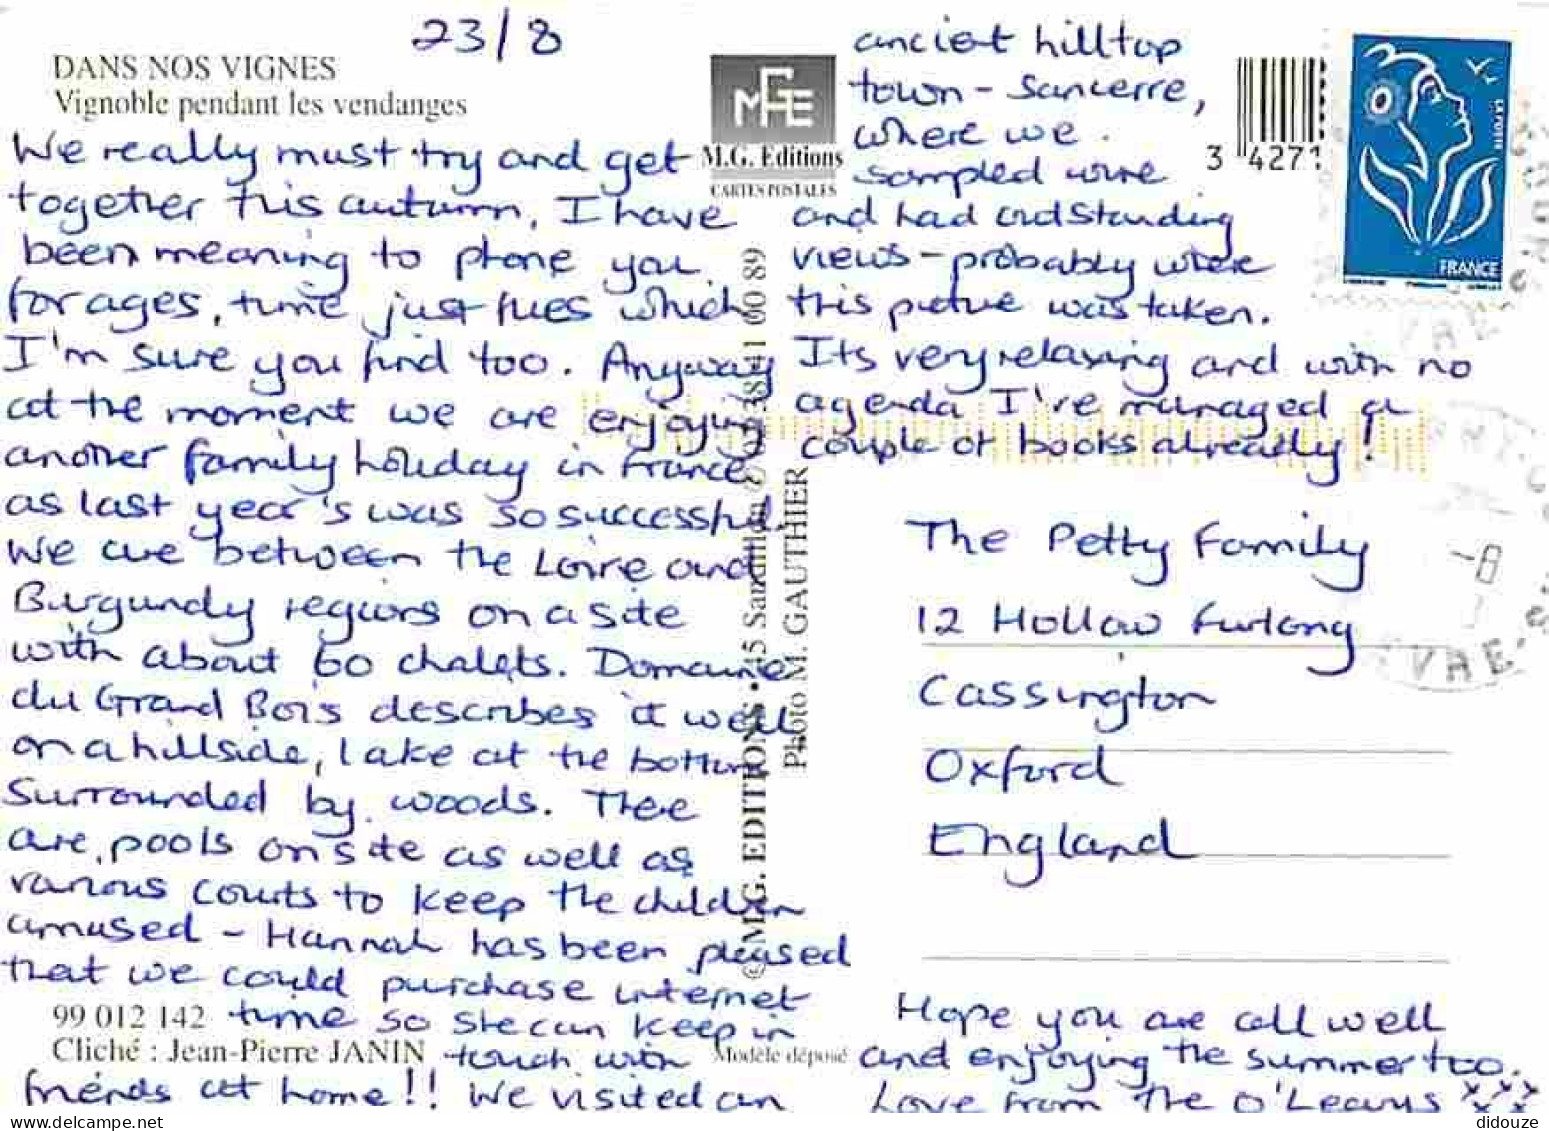 23/8
DANS NOS VIGNES
Vignoble pendant les vendanges
We really must try and get
together this autumn, I have
been meaning to phone you
for ages, time just flies which
I'm sure you find too. Anyway
at the moment we are enjoying
another family holiday in France
as last year's was so successful.
We are between the Loire and
Burgundy regions on a site
with about 60 chalets. Domaine
du Grand Bois describes it well
on a hillside, lake at the bottom
Surrounded by woods. There
are pools on site as well as
various courts to keep the children
amused - Hannah has been pleased
that we could purchase internet
time so she can keep in
touch with
friends at home!! We visited an
99 012 142
Cliché : Jean-Pierre JANIN
M.G. Editions
CARTES POSTALES
© M.G. EDITIONS • 45 Sandillon 38 41 00 89
Photo M. GAUTHIER
Modèle déposé
ancient hilltop
town - Sancerre,
where we
sampled wine
and had outstanding
views - probably where
this picture was taken.
Its very relaxing and with no
agenda I've managed a
couple of books already!
3 4271
LA POSTE
FRANCE
The Petty Family
12 Hollow Furlong
Cassington
Oxford
England
Hope you are all well
and enjoying the summer too.
Love from The O'Learys xxxxx
didouze